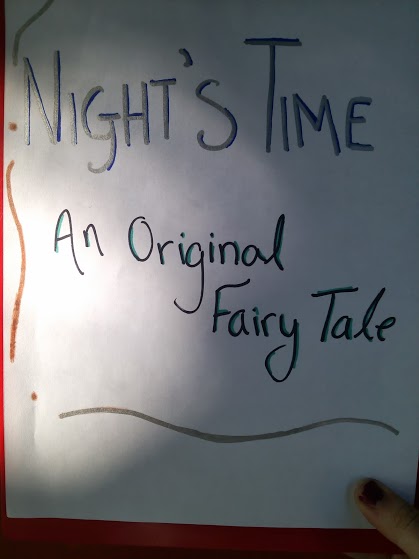 NIGHT'S TIME
An Original
Fairy Tale